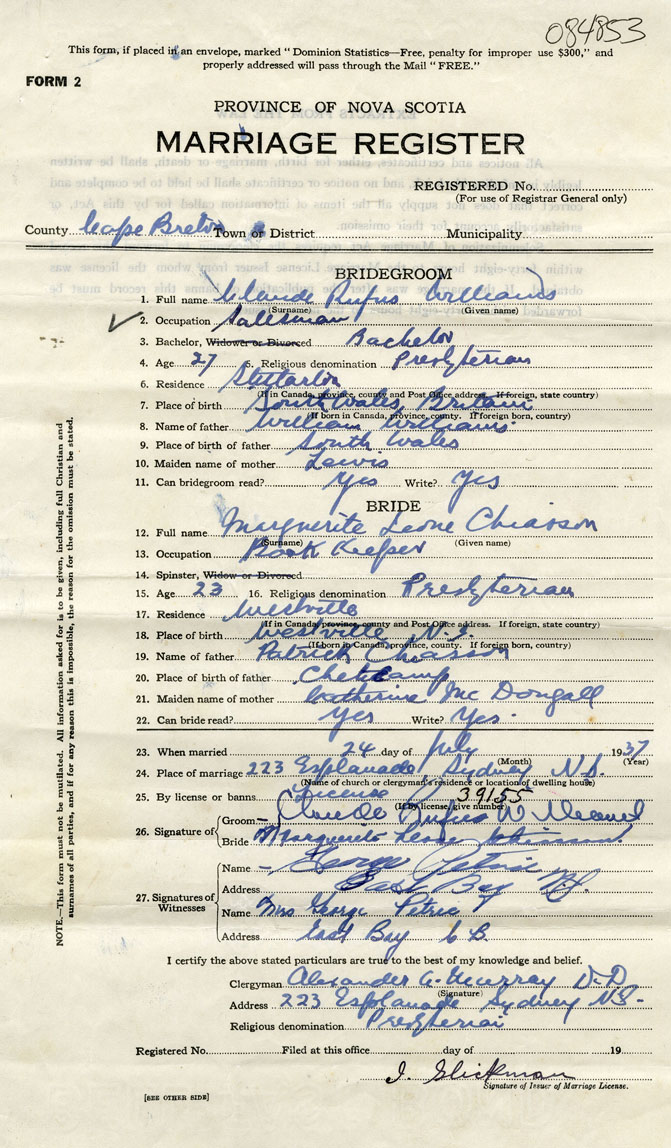 084853
This form, if placed in an envelope, marked " Dominion Statistics—Free, penalty for improper use $300," and
properly addressed will pass through the Mail " FREE."
FORM 2
PROVINCE OF NOVA SCOTIA
MARRIAGE REGISTER
REGISTERED No.
(For use of Registrar General only)
County Cape Breton Town or District Municipality
BRIDEGROOM
1. Full name Claude Rufus Williams
(Surname) (Given name)
2. Occupation Salesman
3. Bachelor, Widower or Divorced Bachelor
4. Age 27 5. Religious denomination Presbyterian
6. Residence Stellarton
(If in Canada, province, county and Post Office address. If foreign, state country)
7. Place of birth South Wales, Britain
(If born in Canada, province, county. If foreign born, country)
8. Name of father William Williams
9. Place of birth of father South Wales
10. Maiden name of mother Lewis
11. Can bridegroom read? Yes Write? Yes
BRIDE
12. Full name Marguerite Leone Chiasson
(Surname) (Given name)
13. Occupation Book Keeper
14. Spinster, Widow or Divorced
15. Age 23 16. Religious denomination Presbyterian
17. Residence Westville
(If in Canada, province, county and Post Office address. If foreign, state country)
18. Place of birth Westville N.S.
(If born in Canada, province, county. If foreign born, country)
19. Name of father Patrick Chiasson
20. Place of birth of father Cheticamp
21. Maiden name of mother Catherine McDougall
22. Can bride read? Yes Write? Yes
23. When married 24 day of July 1937
(Month) (Year)
24. Place of marriage 223 Esplanade, Sydney N.S.
(Name of church or clergyman's residence or location of dwelling house)
25. By license or banns License 39155
(If by license, give number)
26. Signature of Groom Claude Rufus Williams
Bride Marguerite Leone Chiasson
27. Signatures of Witnesses
Name George Petrie
Address East Bay N.S.
Name Mrs George Petrie
Address East Bay C.B.
I certify the above stated particulars are true to the best of my knowledge and belief.
Clergyman Alexander A. Murray D.D.
(Signature)
Address 223 Esplanade Sydney N.S.
Religious denomination Presbyterian
Registered No. Filed at this office day of 19
I. Glickman
Signature of Issuer of Marriage License.
[SEE OTHER SIDE]
NOTE.—This form must not be mutilated. All information asked for is to be given, including full Christian and
surnames of all parties, and if for any reason this is impossible, the reason for the omission must be stated.